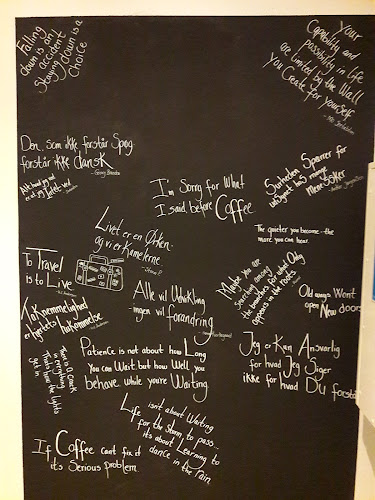 Falling
down is an
accident
Staying down is a
choice
Your
Capability and
possibility in life
are limited by the Wall
You Create for yourself
Den, som ikke forstår Spøg
forstår ikke dansk
- Georg Brandes
I'm Sorry for What
I said before Coffee
Sundheden Sparer for
mange
Mennesker
The quieter you become - the
more you can hear
Livet er en Ørken-
og vi er Kamelerne
To Travel
is to Live
Maybe you are
searching among
the branches for what Only
appears in the roots
Alle vil Udvikling
ingen vil forandring
Old ways Wont
open New doors
Taknemmelighed
er hjertets hukommelse
Patience is not about how Long
You can Wait but how Well you
behave while you're Waiting
There is a Crack
in everything
That's how the Light
get in
Jeg er Kun Ansvarlig
for hvad Jeg Siger
ikke for hvad Du forstår
Life isn't about Waiting
for the Storm to pass...
it's about Learning to
dance in the Rain
If Coffee cant fix it
it's Serious problem